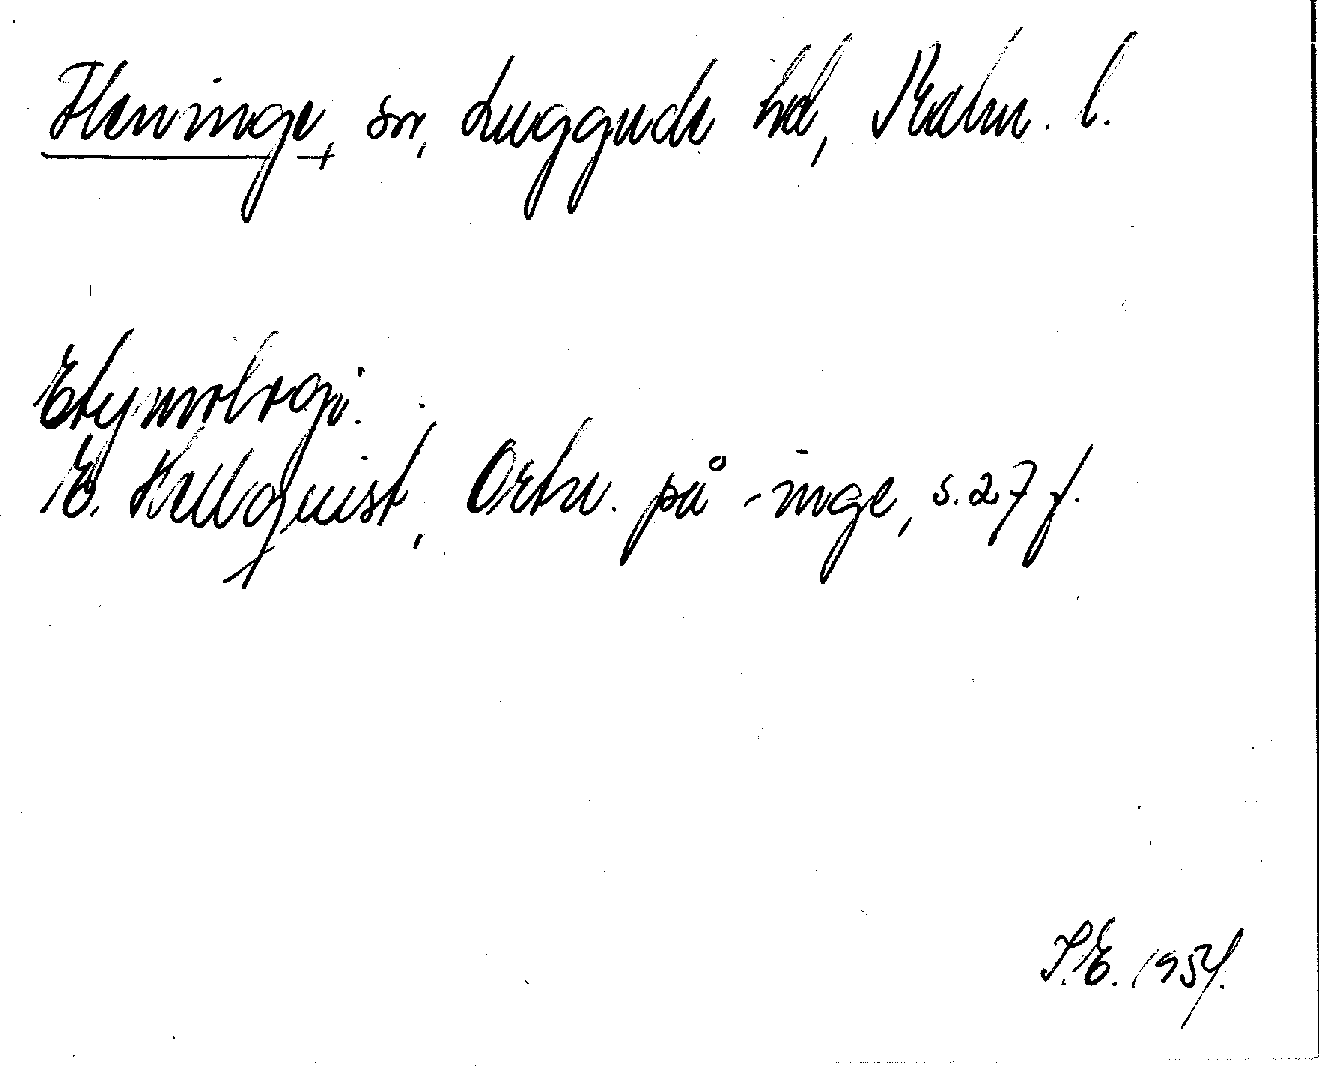 Fleninge, sn, Luggude hd, Malm. l.
Etymologi:
E. Hellquist, Ortn. på -inge, s. 27 f.
S.E. 1954.